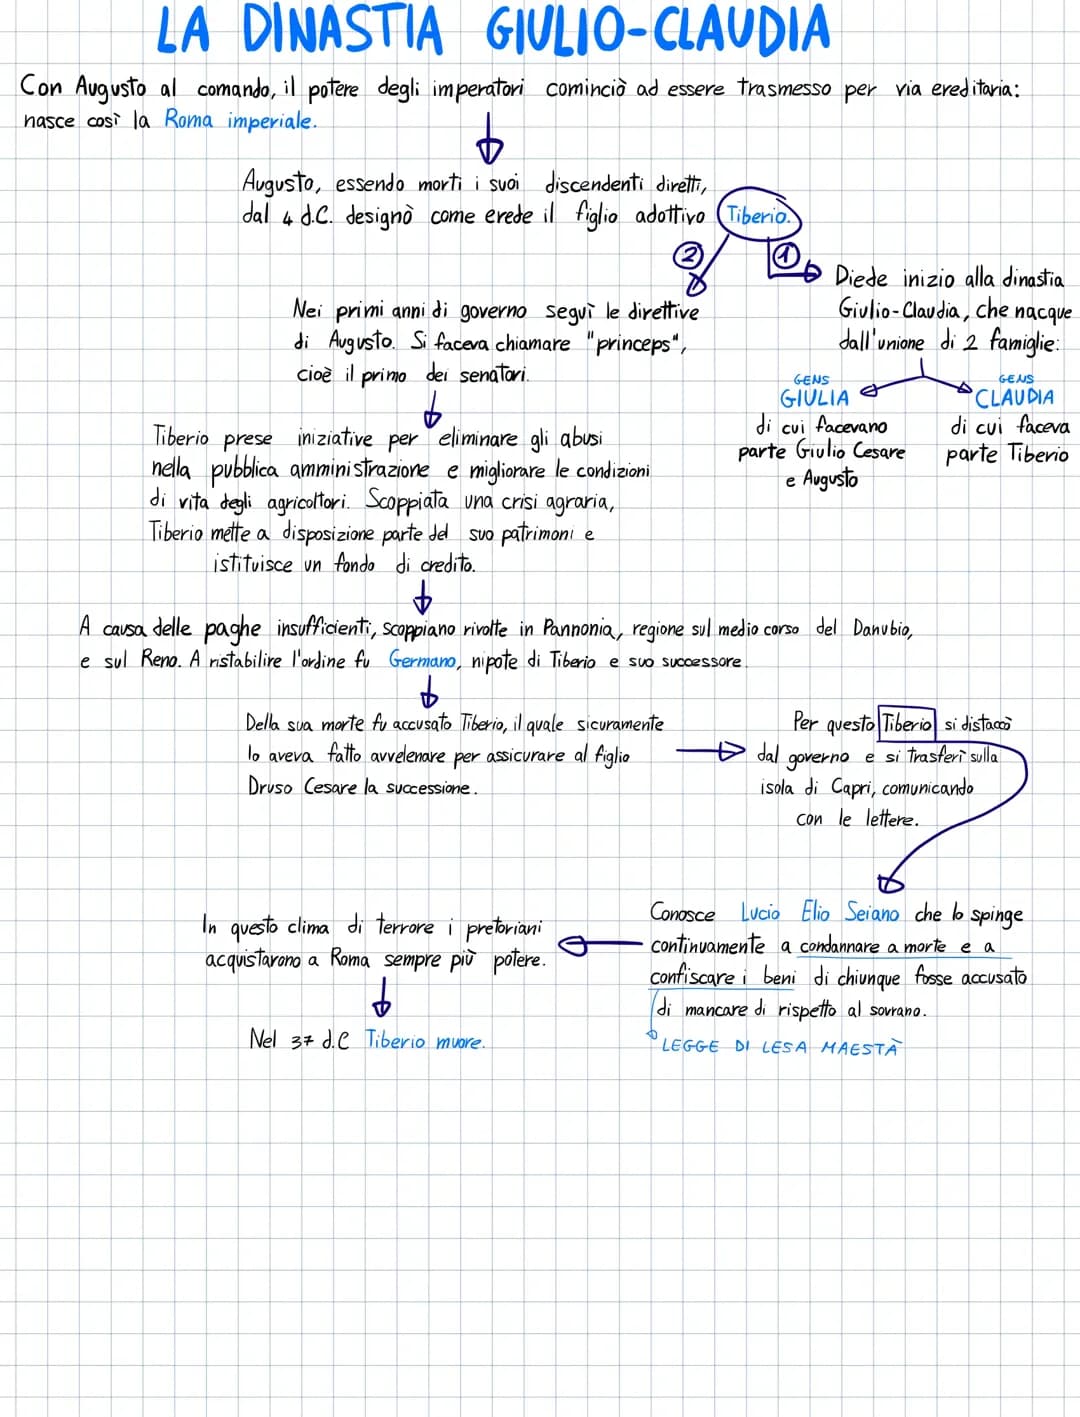 LA DINASTIA GIULIO-CLAUDIA
Con Augusto al comando, il potere degli imperatori cominciò ad essere trasmesso per via ereditaria:
nasce così la Roma imperiale.
Augusto, essendo morti i suoi discendenti diretti,
dal 4 d.C. designò come erede il figlio adottivo Tiberio.
2
1
Diede inizio alla dinastia
Giulio-Claudia, che nacque
dall'unione di 2 famiglie:
GENS
GIULIA
di cui facevano
parte Giulio Cesare
e Augusto
GENS
CLAUDIA
di cui faceva
parte Tiberio
Nei primi anni di governo seguì le direttive
di Augusto. Si faceva chiamare "princeps",
cioè il primo dei senatori.
Tiberio prese iniziative per eliminare gli abusi
nella pubblica amministrazione e migliorare le condizioni
di vita degli agricoltori. Scoppiata una crisi agraria,
Tiberio mette a disposizione parte del suo patrimoni e
istituisce un fondo di credito.
A causa delle paghe insufficienti, scoppiano rivolte in Pannonia, regione sul medio corso del Danubio,
e sul Reno. A ristabilire l'ordine fu Germano, nipote di Tiberio e suo successore.
Della sua morte fu accusato Tiberio, il quale sicuramente
lo aveva fatto avvelenare per assicurare al figlio
Druso Cesare la successione.
Per questo Tiberio si distaccò
dal governo e si trasferì sulla
isola di Capri, comunicando
con le lettere.
Conosce Lucio Elio Seiano che lo spinge
continuamente a condannare a morte e a
confiscare i beni di chiunque fosse accusato
di mancare di rispetto al sovrano.
LEGGE DI LESA MAESTÀ
In questo clima di terrore i pretoriani
acquistarono a Roma sempre più potere.
Nel 37 d.C Tiberio muore.